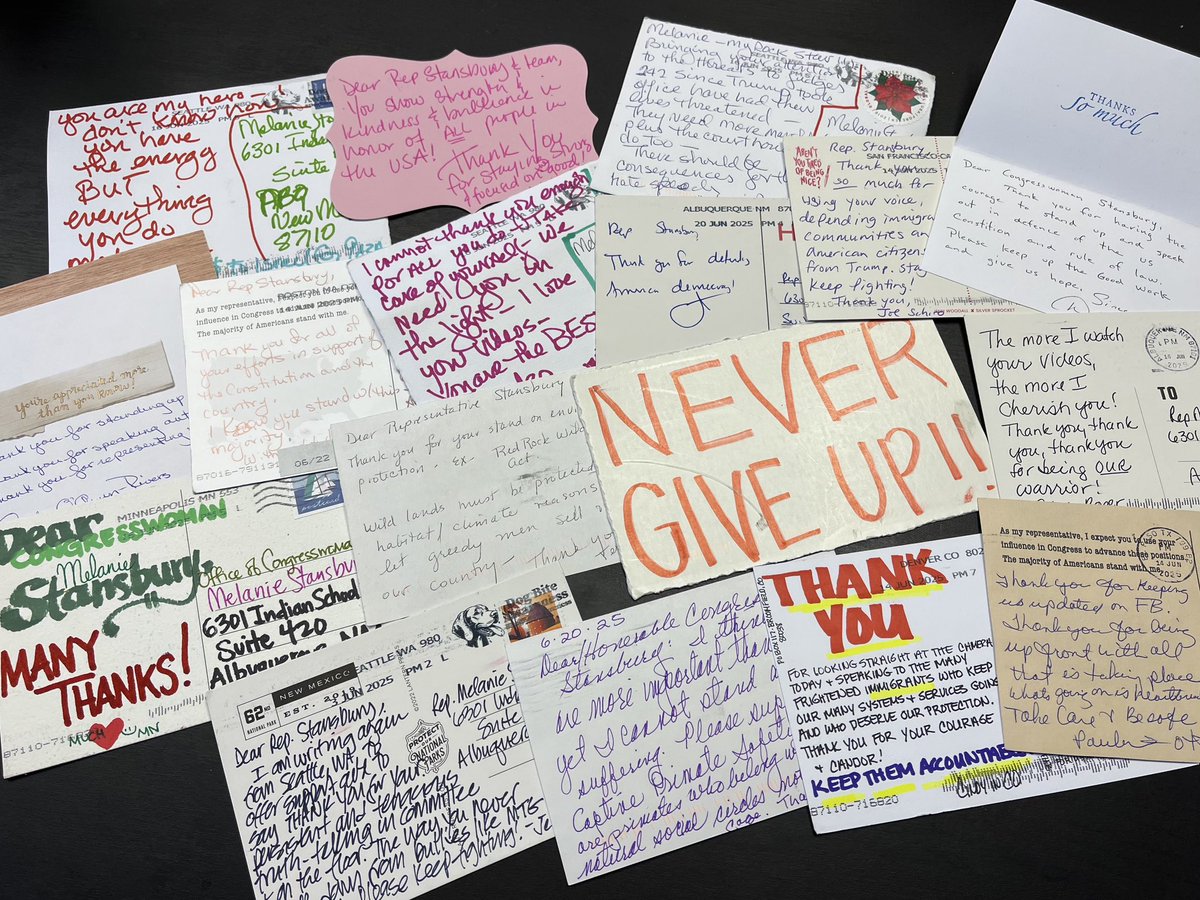 you are my hero-!
don't know how
you have
the energy
BUT
everything
you do
SEATTLE WA 980
6301 Indian
Suite
New M
8710
Dear Rep Stansbury & team,
you show strength &
kindness & benevolence in
honor of ALL people in
the USA!
Thank You
for staying strong
& focused on good!
Melanie - my Rock Star
Bringing your attention
to the threats to judges
242 since Trump took
office have had their
lives threatened -
They need more
plus the courthouses
do too -
There should be
consequences for
hate speech
AREN'T YOU TIRED OF BEING NICE?
SAN FRANCISCO CA
Rep. Stansbury
Thank you
so much for
using your voice,
depending immigrant
communities and
American citizens
from Trump. Stay
keep fighting!
Thank you,
WOODALL X SILVER SPROCKET
THANKS
so much
Dear Congresswoman Stansbury,
Thank you for having the
courage to stand up and speak
out in defence of the
Constitution the rule of law.
Please keep up the Good Work
and give us hope.
I cannot thank you enough
for ALL you do - TAKE
care of yourself - we
Need you in
the fight - I love
your videos -
You are - the BEST
ALBUQUERQUE NM 87
20 JUN 2025 PM
Rep Stansbury,
Thank you for
America democracy!
Dear Rep Stansbury,
As my representative, I expect you to use your
influence in Congress
The majority of Americans stand
Thank you for all of
your efforts in support of
the Constitution and my
country.
I know you stand
majority,
You're appreciated more
than you know!
Thank you for standing up
Thank you for speaking out
Thank you for representing
Dear Representative Stansbury
Thank you for your stand on
protection. Ex- Red Rock Wild
act.
Wild lands must be protected
habitat/climate reasons
let greedy men sell
our country - Thank you
NEVER
GIVE UP!!
The more I watch
your videos,
the more I
Cherish you!
Thank you, thank
you, thank you
for being OUR
warrior!
ALBUQUERQUE NM
PM
14 JUN
2025
TO
Rep
6301
MINNEAPOLIS MN 553
Dear
CONGRESSWOMAN
Melanie
Stansbury,
MANY
THANKS!
MUCH ♥ MN
06/22
Office of Congresswoman
Melanie Stansbury
6301 Indian School
Suite 420
Albuquerque
As my representative, I expect you to use your
influence in Congress to advance these positions.
The majority of Americans stand with me.
PM
14 JUN
2025
Thank you for keeping
us updated on FB.
Thank you for being
up front with all
that is taking place
whats going on is
Take Care & Be safe
62ND
NATIONAL PARK
NEW MEXICO
EST.
SEATTLE WA 980
JUN 2025 PM 2 L
PROTECT
NATIONAL
PARKS
Dear Rep. Stansbury,
I am writing again
from Seattle, WA to
offer support and to
say THANK YOU for your
persistent and tenacious
truth-telling in committee
& on the floor. The way you never
down from bullies like
Please keep fighting!
Rep. Melanie
6301 Indian
Suite
Albuquerque
Dog Bite
6.20.25
Dear/Honorable Congress
Stansbury: I think
are more important than
yet I cannot stand
suffering. Please support
Captive Primate Safety
are primates who belong
natural social circles not
cage.
THANK
YOU
DENVER CO 802
JUN 2025 PM 7
FOR LOOKING STRAIGHT AT THE CAMERA
TODAY & SPEAKING TO THE MANY
FRIGHTENED IMMIGRANTS WHO KEEP
OUR MANY SYSTEMS & SERVICES GOING
AND WHO DESERVE OUR PROTECTION.
THANK YOU FOR YOUR COURAGE
& CANDOR!
KEEP THEM ACCOUNTABLE
CINDY IN CO
87110-716820